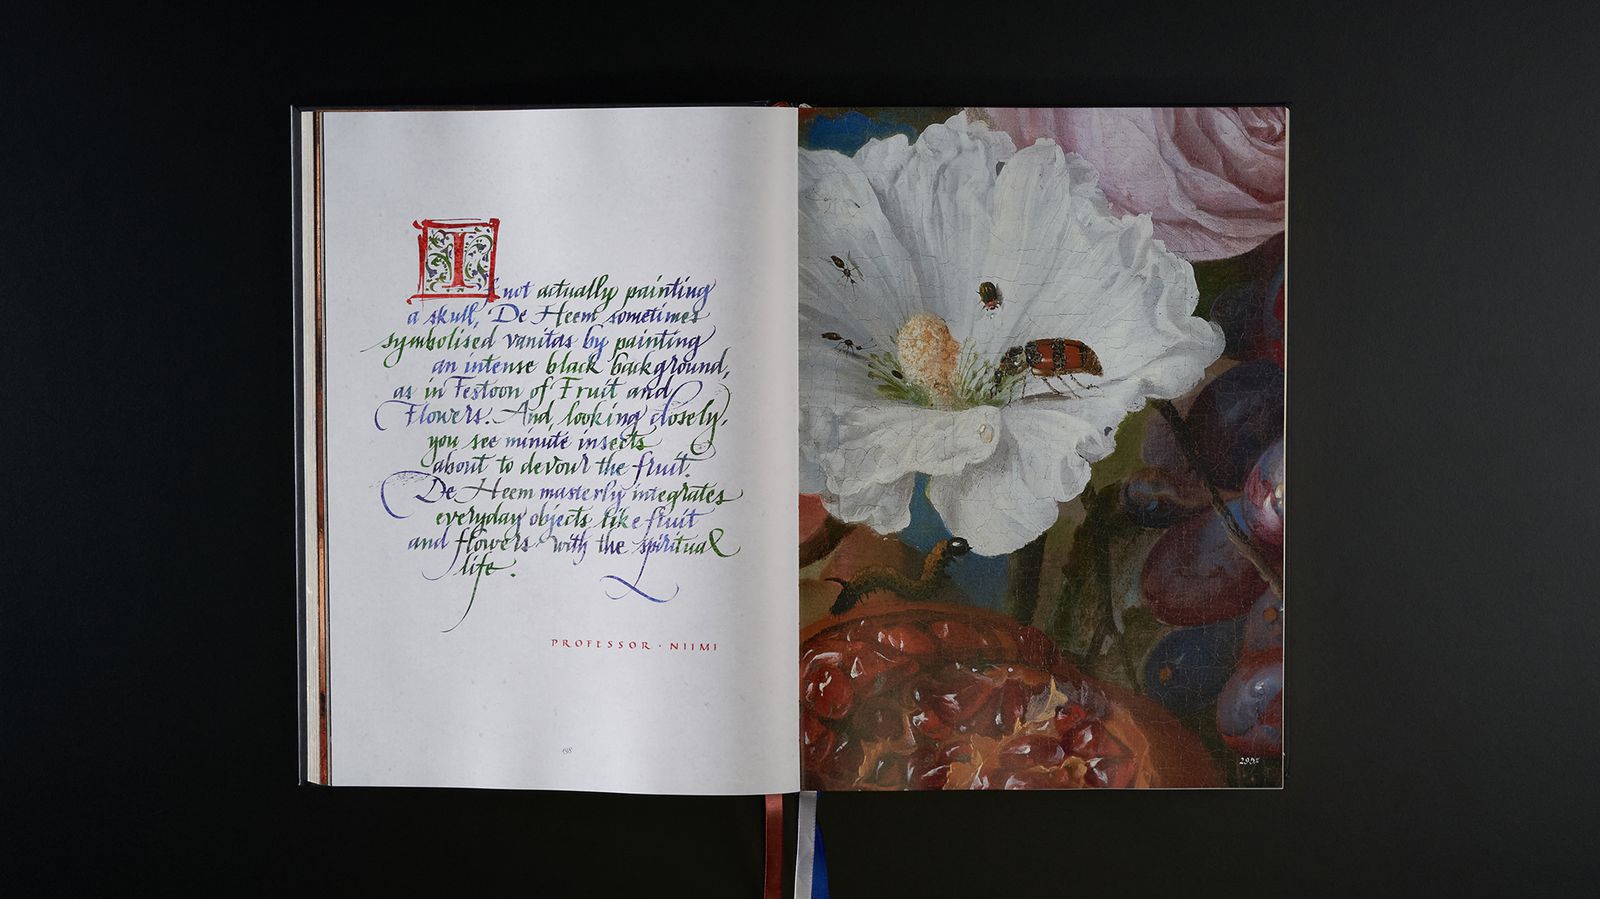 If not actually painting
a skull, De Heem sometimes
symbolised vanitas by painting
an intense black background,
as in Festoon of Fruit and
Flowers. And, looking closely,
you see minute insects
about to devour the fruit.
De Heem masterly integrates
everyday objects like fruit
and flowers with the spiritual
life.
PROFESSOR · NIIMI
198
295%